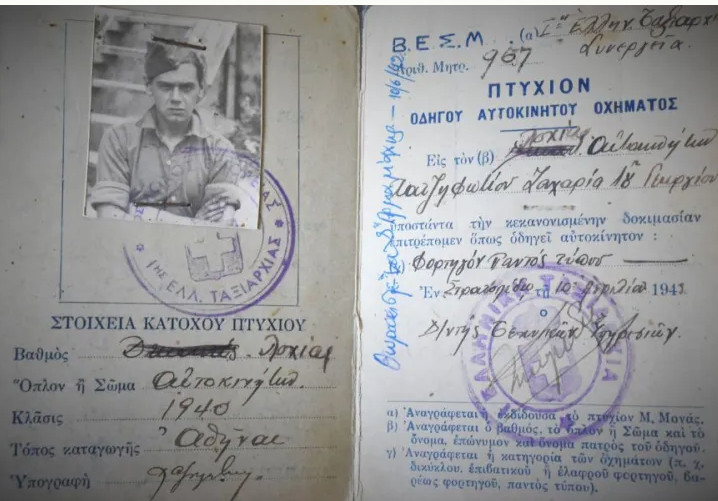 1ης ΕΛΛ. ΤΑΞΙΑΡΧΙΑΣ
ΣΤΟΙΧΕΙΑ ΚΑΤΟΧΟΥ ΠΤΥΧΙΟΥ
Βαθμὸς Λοχίας
Ὅπλον ἤ Σῶμα Αὐτοκινήτων
Κλᾶσις 1940
Τόπος καταγωγῆς Ἀθῆναι
Ὑπογραφὴ
Β.Ε.Σ.Μ. (α) Ιη Ἑλλην. Ταξιαρχ
Συνεργεῖα
Ἀριθ. Μητρ. 957
ΠΤΥΧΙΟΝ
ΟΔΗΓΟΥ ΑΥΤΟΚΙΝΗΤΟΥ ΟΧΗΜΑΤΟΣ
Εἰς τὸν (β) Λοχίαν Αὐτοκινήτων
Χατζηφωτίου Ζαχαρία τοῦ Γεωργίου
ὑποστάντα τὴν κεκανονισμένην δοκιμασίαν
ἐπιτρέπομεν ὅπως ὁδηγεῖ αὐτοκίνητον :
Φορτηγὸν παντὸς τύπου
Ἐν τῇ 10 194
ὁ
Δ/ντὴς Τεχνικῶν Ὑπηρεσιῶν
α) Ἀναγράφεται ἡ ἐκδίδουσα τὸ πτυχίον Μ. Μονάς.
β) Ἀναγράφεται ὁ βαθμός, τὸ ὅπλον ἤ Σῶμα καὶ τὸ
ὄνομα, ἐπώνυμον καὶ ὄνομα πατρὸς τοῦ ὁδηγοῦ.
γ) Ἀναγράφεται ἡ κατηγορία τῶν ὀχημάτων (π. χ.
δικύκλου, ἐπιβατικοῦ ἤ ἐλαφροῦ φορτηγοῦ, βα-
ρέως φορτηγοῦ, παντὸς τύπου).